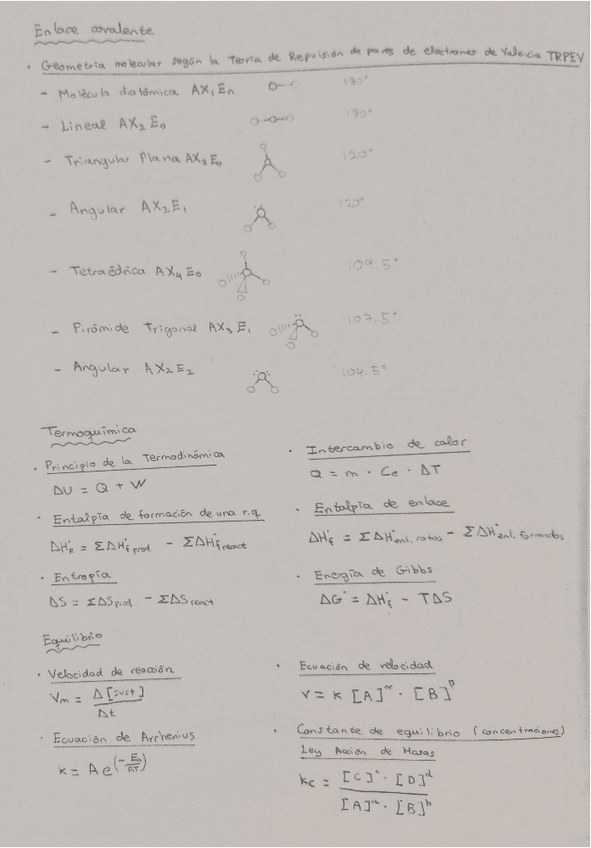 Enlace covalente
· Geometría molecular según la Teoría de Repulsión de pares de electrones de Valencia TRPEV
- Molécula diatómica AX₁En 180°
- Lineal AX₂E₀ 180°
- Triangular Plana AX₃E₀ 120°
- Angular AX₂E₁ 120°
- Tetraédrica AX₄E₀ 109.5°
- Pirámide Trigonal AX₃E₁ 107.5°
- Angular AX₂E₂ 104.5°
Termoquímica
· Principio de la Termodinámica
ΔU = Q + W
· Entalpía de formación de una r.q
ΔH°R = ΣΔH°f prod - ΣΔH°f react
· Entropía
ΔS = ΣΔS prod - ΣΔS react
· Intercambio de calor
Q = m · Ce · ΔT
· Entalpía de enlace
ΔH°f = ΣΔH°enl. rotos - ΣΔH°enl. formados
· Energía de Gibbs
ΔG° = ΔH°f - TΔS
Equilibrio
· Velocidad de reacción
Vm = Δ[sust] / Δt
· Ecuación de Arrhenius
k = A e^(-Ea/RT)
· Ecuación de velocidad
v = k [A]^α · [B]^β
· Constante de equilibrio (concentraciones)
Ley Acción de Masas
kc = [C]^c · [D]^d / [A]^a · [B]^b